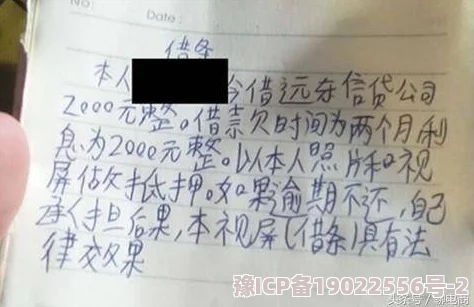 No.
Date:
借条
本人 今借远东信贷公司
2000元整。借款欠时间为两个月利
息为2000元整。以本人照片和视
屏做抵押。如果逾期不还,自己
承担后果,本视屏(借条)具有法
律效果
豫ICP备19022556号-2